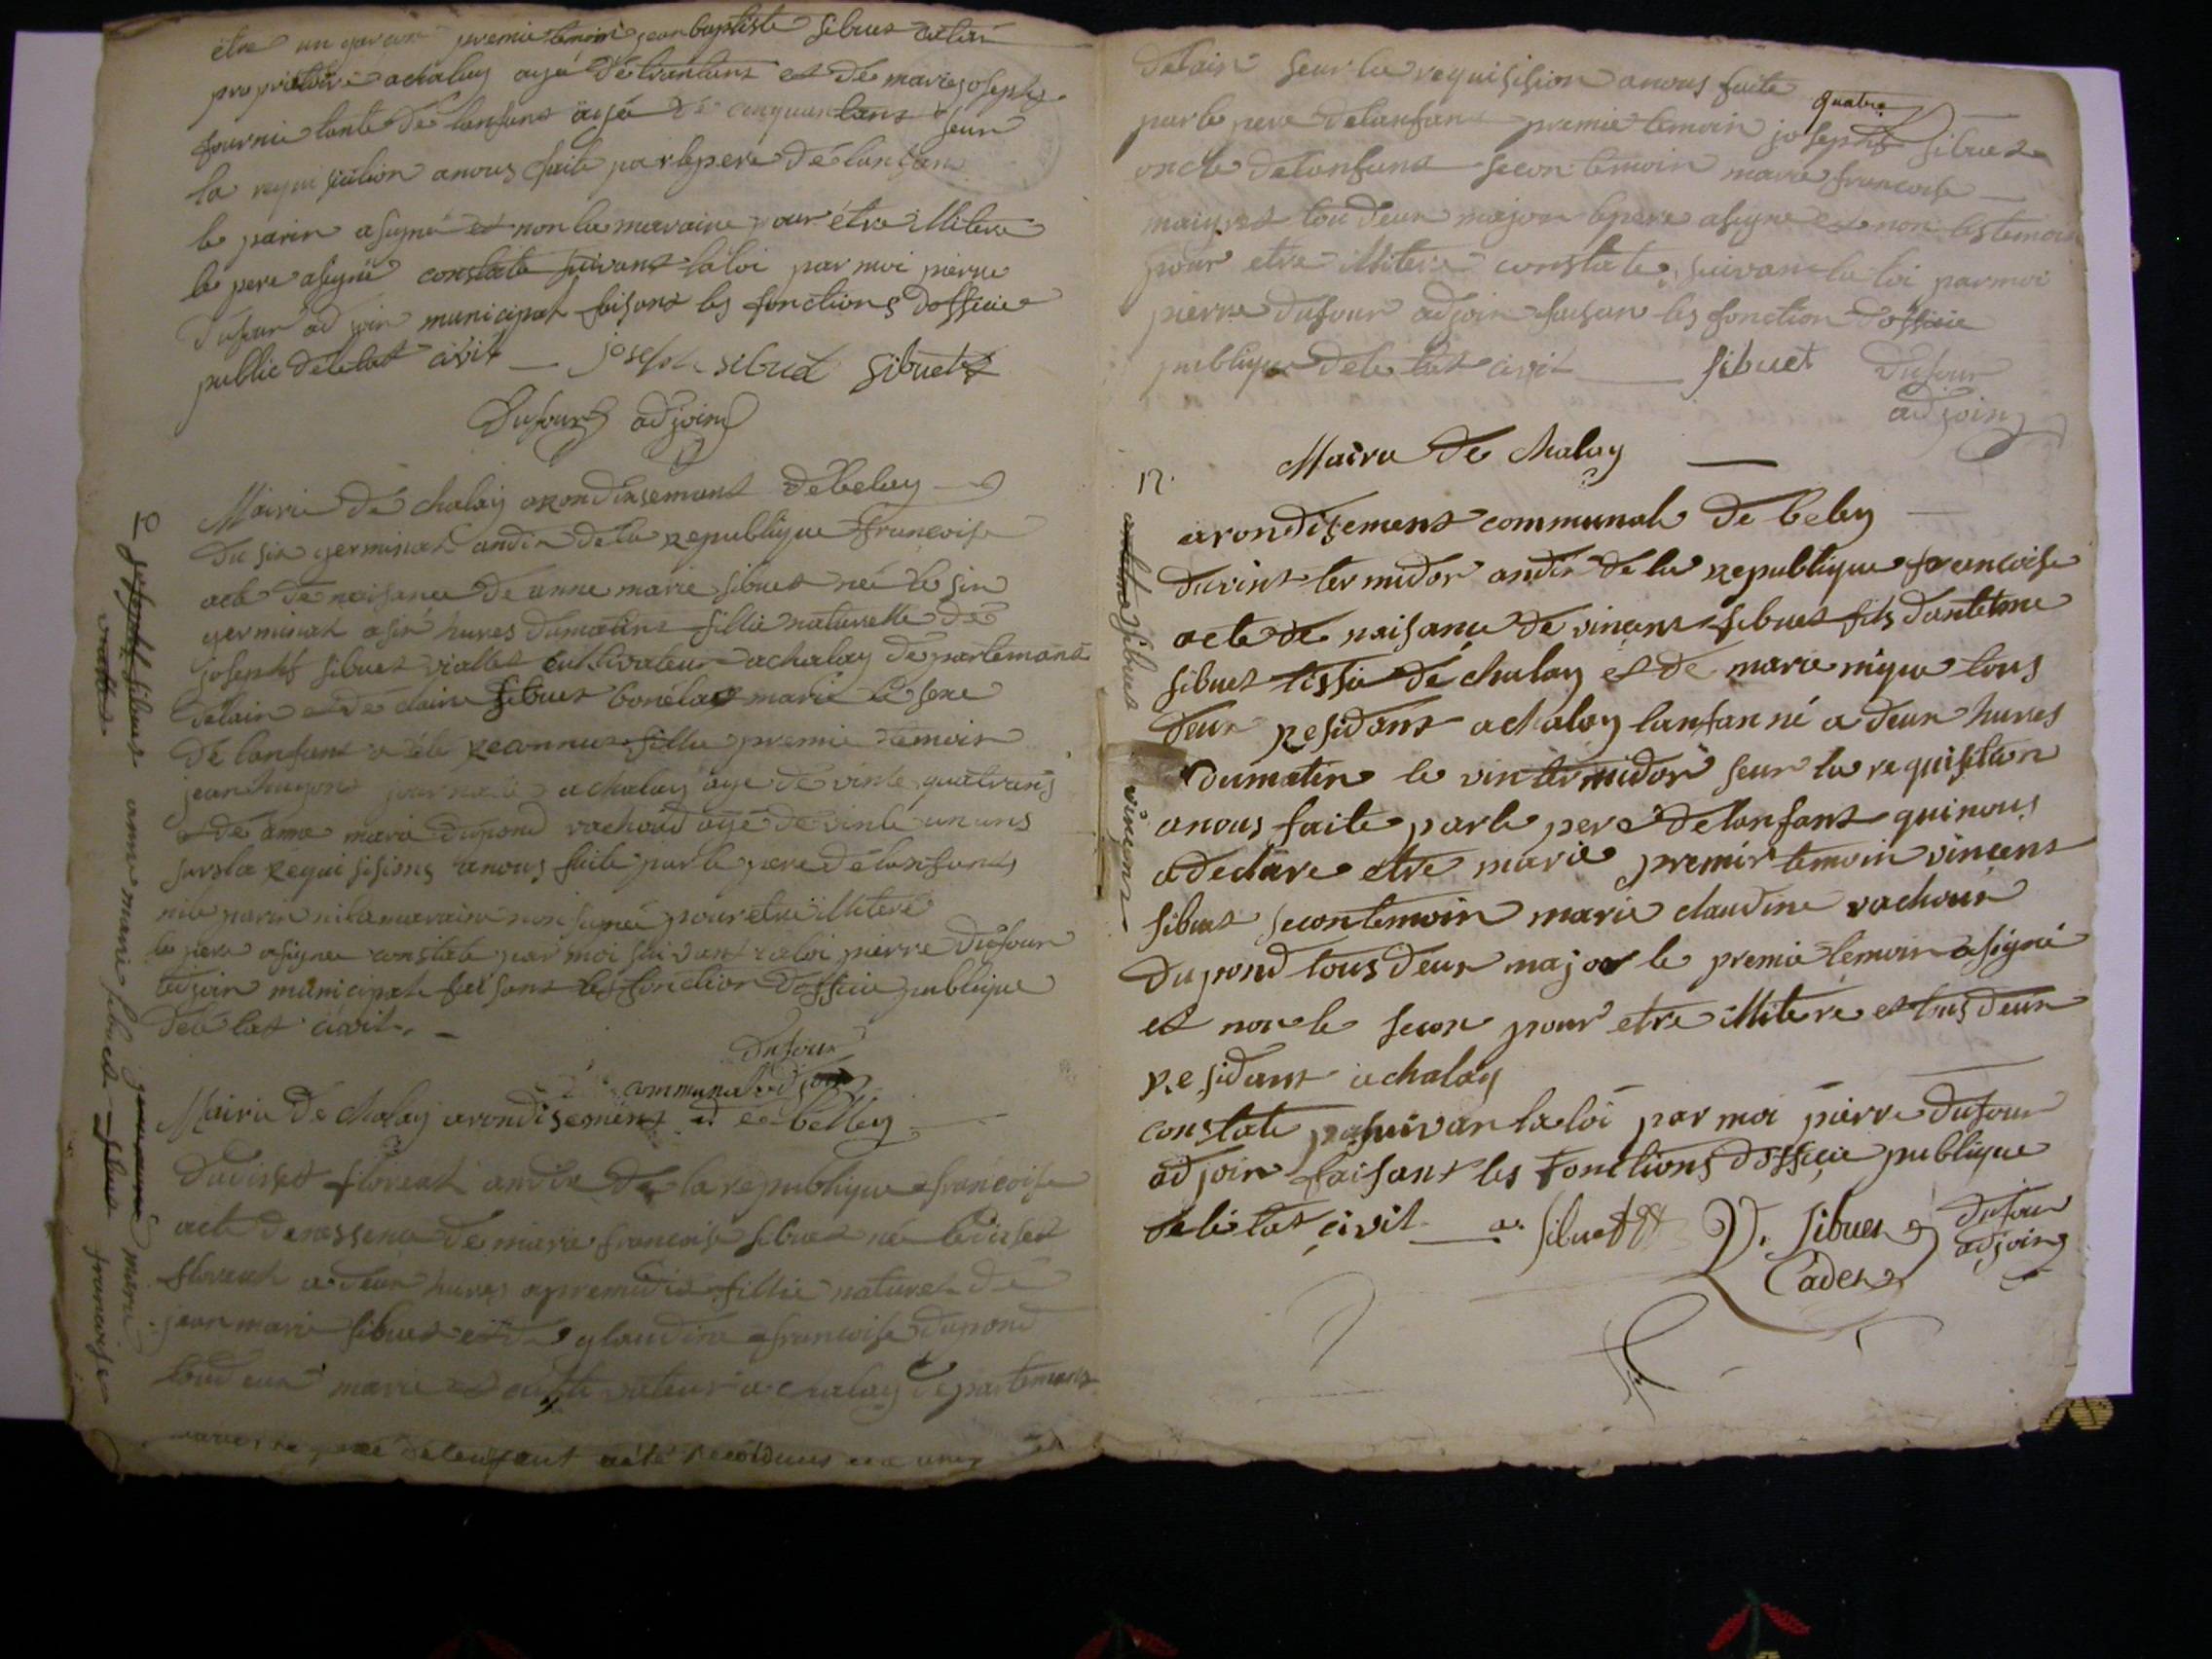 être un garcon premie temoin jean baptiste sibuet
propriétaire achaley agé détrantans et dé marie joseph
fournie tante dé lanfans agéé dé cinquantans seur
la requisition anous faite parlepere délanfan
le parin asigné et non la maraine pour être illiteré
le pere asigné constaté suivant laloi par moi pierre
dufour adjoin municipal faisans les fonctions dofficie
public délétat civil — joseph sibuet sibuet
Dufour adjoin
Mairie dé chaley arondisemant débeley
du six germinal andix dela republique francoise
acte dé naisance de anne marie sibuet néé le six
germinal asix hures dumatins fillie naturelle dé
joseph sibuet viallet cultivateur achaley départemans
délain et dé claire sibuet bonélas marié le sexe
dé lanfans a été reconnus fillie premie temoin
jean hugon journalié achaley agé dé vinte quatrans
et dé anne marie dupond vachoud agé dé vinte un ans
sur la requisisions anous faite par le pere dé lanfans
nile parin nilamaraine non signéé pour etre illiteré
le pere asigné constaté par moi suivant laloi pierre dufour
adjoin municipale faisans les fonction dofficie publique
delétat civil. —
dufour
adjoin
Mairie de chaley arondisemens communal de belley
dudisset floreal andix de la republique francoise
acte denessence de marie francoise sibuet néé ledisset
floreal adeux hures apremidie fillie naturel dé
jean marie sibuet et de glaudine francoise dupond
tou deux marié et cultivateur a chaley départemans
délenfant aété reconnus
10 joseph sibuet viallet
anne marie sibuet
marie francoise
delain seur la requisition anous faite
par le pere delanfans premie temoin joseph quatre sibuet
oncle delanfans secon temoin marie francoise
maigret tou deux major lepere asigne et non les temoin
pour etre illitere constate suivan la loi parmoi
pierre dufour adjoin faisan les fonction dofficie
publique delétat civil — sibuet dufour
adjoin
12. Mairie de chaley —
arondisement communale de beley —
duvint termidor andix de la republique francoise
acte de naisance de vincens sibuet fils dantelme
sibuet tissié dé chaley et de marie nique tous
deux residans achaley lanfan né a deux hures
dumatin le vin termidor seur la requisition
anous faite parle pere delanfans quinous
adeclare etre marié premir temoin vincens
sibuet secontemoin marie claudine vachoud
dupond tous deux major le premie temoin asigné
et non le secon pour etre illiteré et tous deux
residans achaley
constaté suivan laloi par moi pierre dufour
adjoin faisant les fonctions dofficie publique
delétat civil — a. sibuet V. sibuet dufour
Cadet adjoin
antelme sibuet vincens